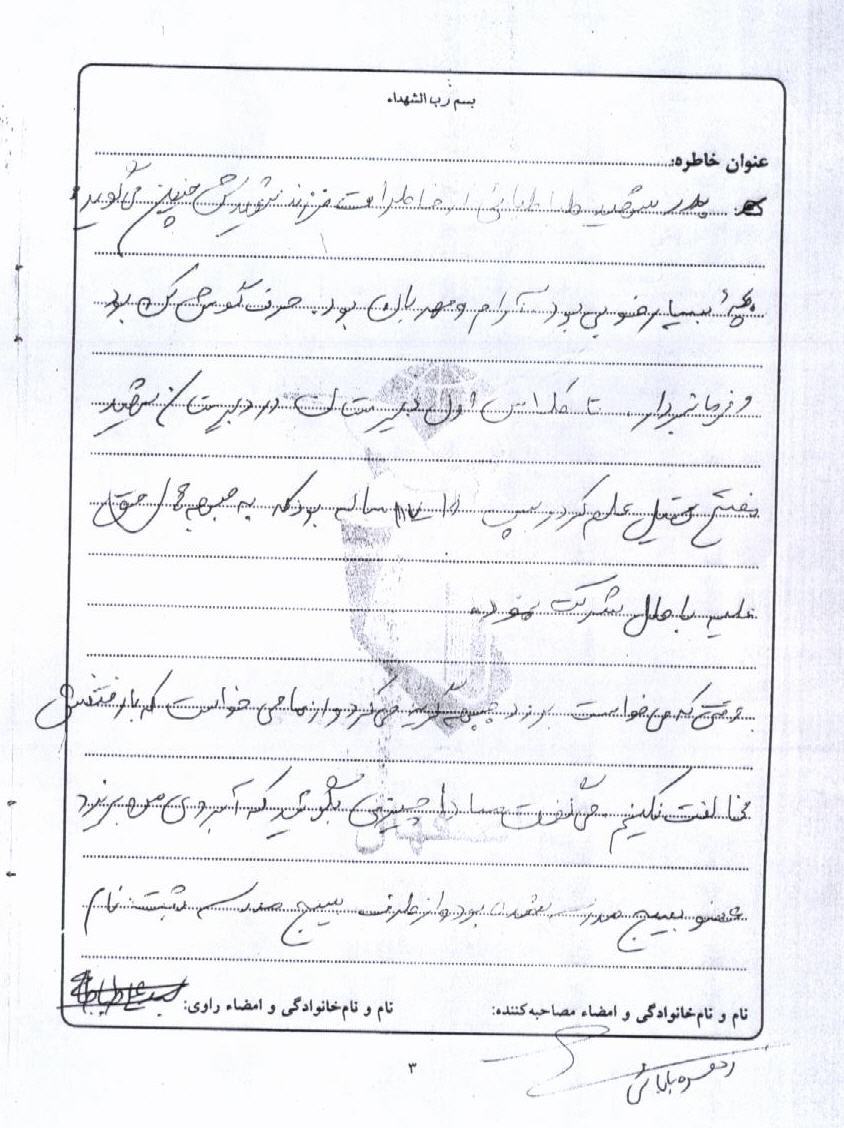 بسم رب الشهداء
عنوان خاطره:
پدر شهید طباطبائی از خاطرات فرزند شهیدش چنین می‌گوید:
بچه بسیار خوبی بود. آرام و مهربان بود. حرف گوش کن بود
و فرمانبردار. تا کلاس اول دبیرستان در دبیرستان شهید
مفتح تحصیل علم کرد و سپس ۱۷ ساله بود که به جبهه حق
علیه باطل شرکت نمود.
وقتی که می‌خواست برود جبهه گریه می‌کرد و از ما می خواست که با رفتنش
مخالفت نکنیم. می‌گفت مبادا چیزی بگوئید که آبروی من بریزد
عضو بسیج مدرسه شده بود و از طرف بسیج مدرسه ثبت نام
نام و نام‌خانوادگی و امضاء مصاحبه‌کننده:
نام و نام‌خانوادگی و امضاء راوی:
بابائی
۳